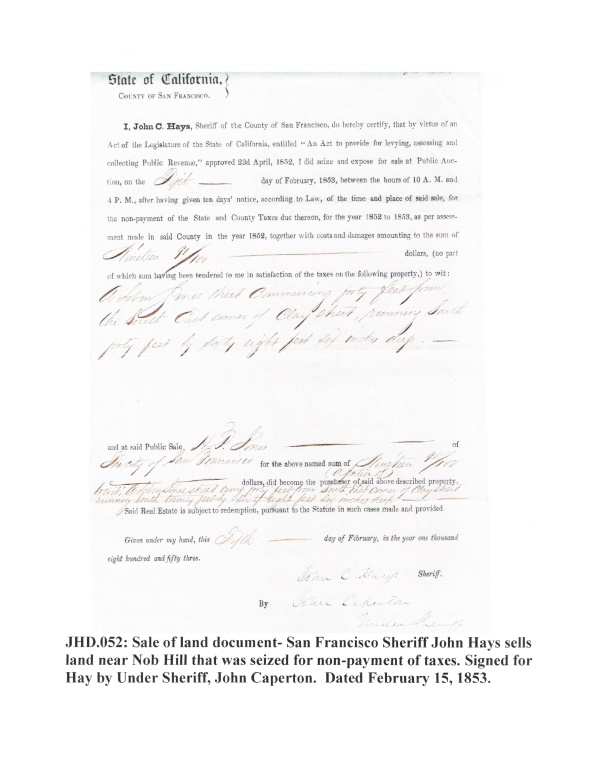 State of California,
COUNTY OF SAN FRANCISCO.
I, John C. Hays, Sheriff of the County of San Francisco, do hereby certify, that by virtue of an
Act of the Legislature of the State of California, entitled "An Act to provide for levying, assessing and
collecting Public Revenue," approved 23d April, 1852, I did seize and expose for sale at Public Auc-
tion, on the Fift day of February, 1853, between the hours of 10 A. M. and
4 P. M., after having given ten days' notice, according to Law, of the time and place of said sale, for
the non-payment of the State and County Taxes due thereon, for the year 1852 to 1853, as per assess-
ment made in said County in the year 1852, together with costs and damages amounting to the sum of
Nineteen 91/100 dollars, (no part
of which sum having been tendered to me in satisfaction of the taxes on the following property,) to wit:
Jones street commencing forty feet from
the South East corner of Clay street, running South
forty feet by sixty eight feet six inches deep.
and at said Public Sale, Jones of
the city of San Francisco for the above named sum of Nineteen 91/100
dollars, did become the purchaser of said above described property.
Jones street forty feet from South East corner of Clay street
running south twenty feet by sixty eight feet six inches deep
Said Real Estate is subject to redemption, pursuant to the Statute in such cases made and provided
Given under my hand, this Fifth day of February, in the year one thousand
eight hundred and fifty three.
John C Hays Sheriff.
By John Caperton
Under Sheriff
JHD.052: Sale of land document- San Francisco Sheriff John Hays sells
land near Nob Hill that was seized for non-payment of taxes. Signed for
Hay by Under Sheriff, John Caperton. Dated February 15, 1853.